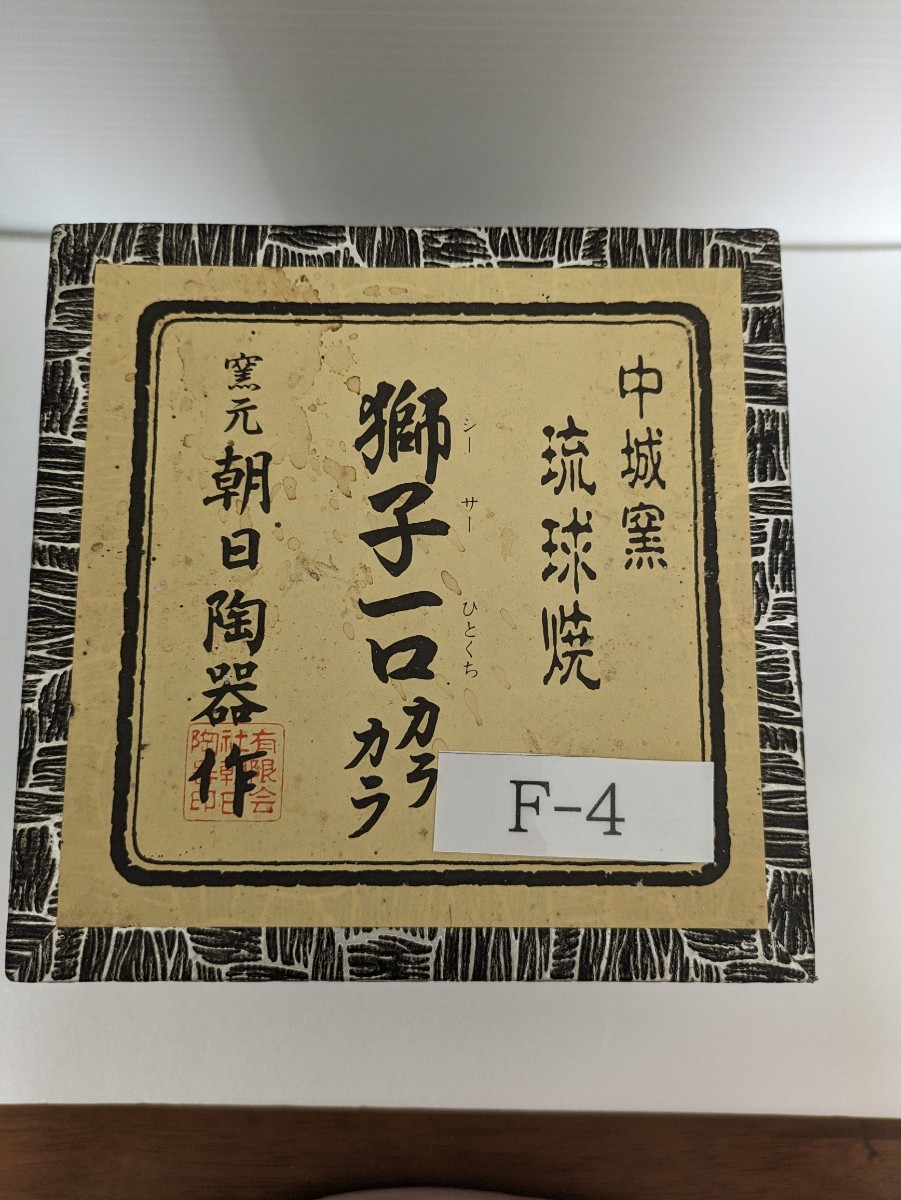 中城窯
琉球焼
シーサー ひとくち
獅子一口カラカラ
窯元 朝日陶器作
有限会
社朝日
陶器印
F-4